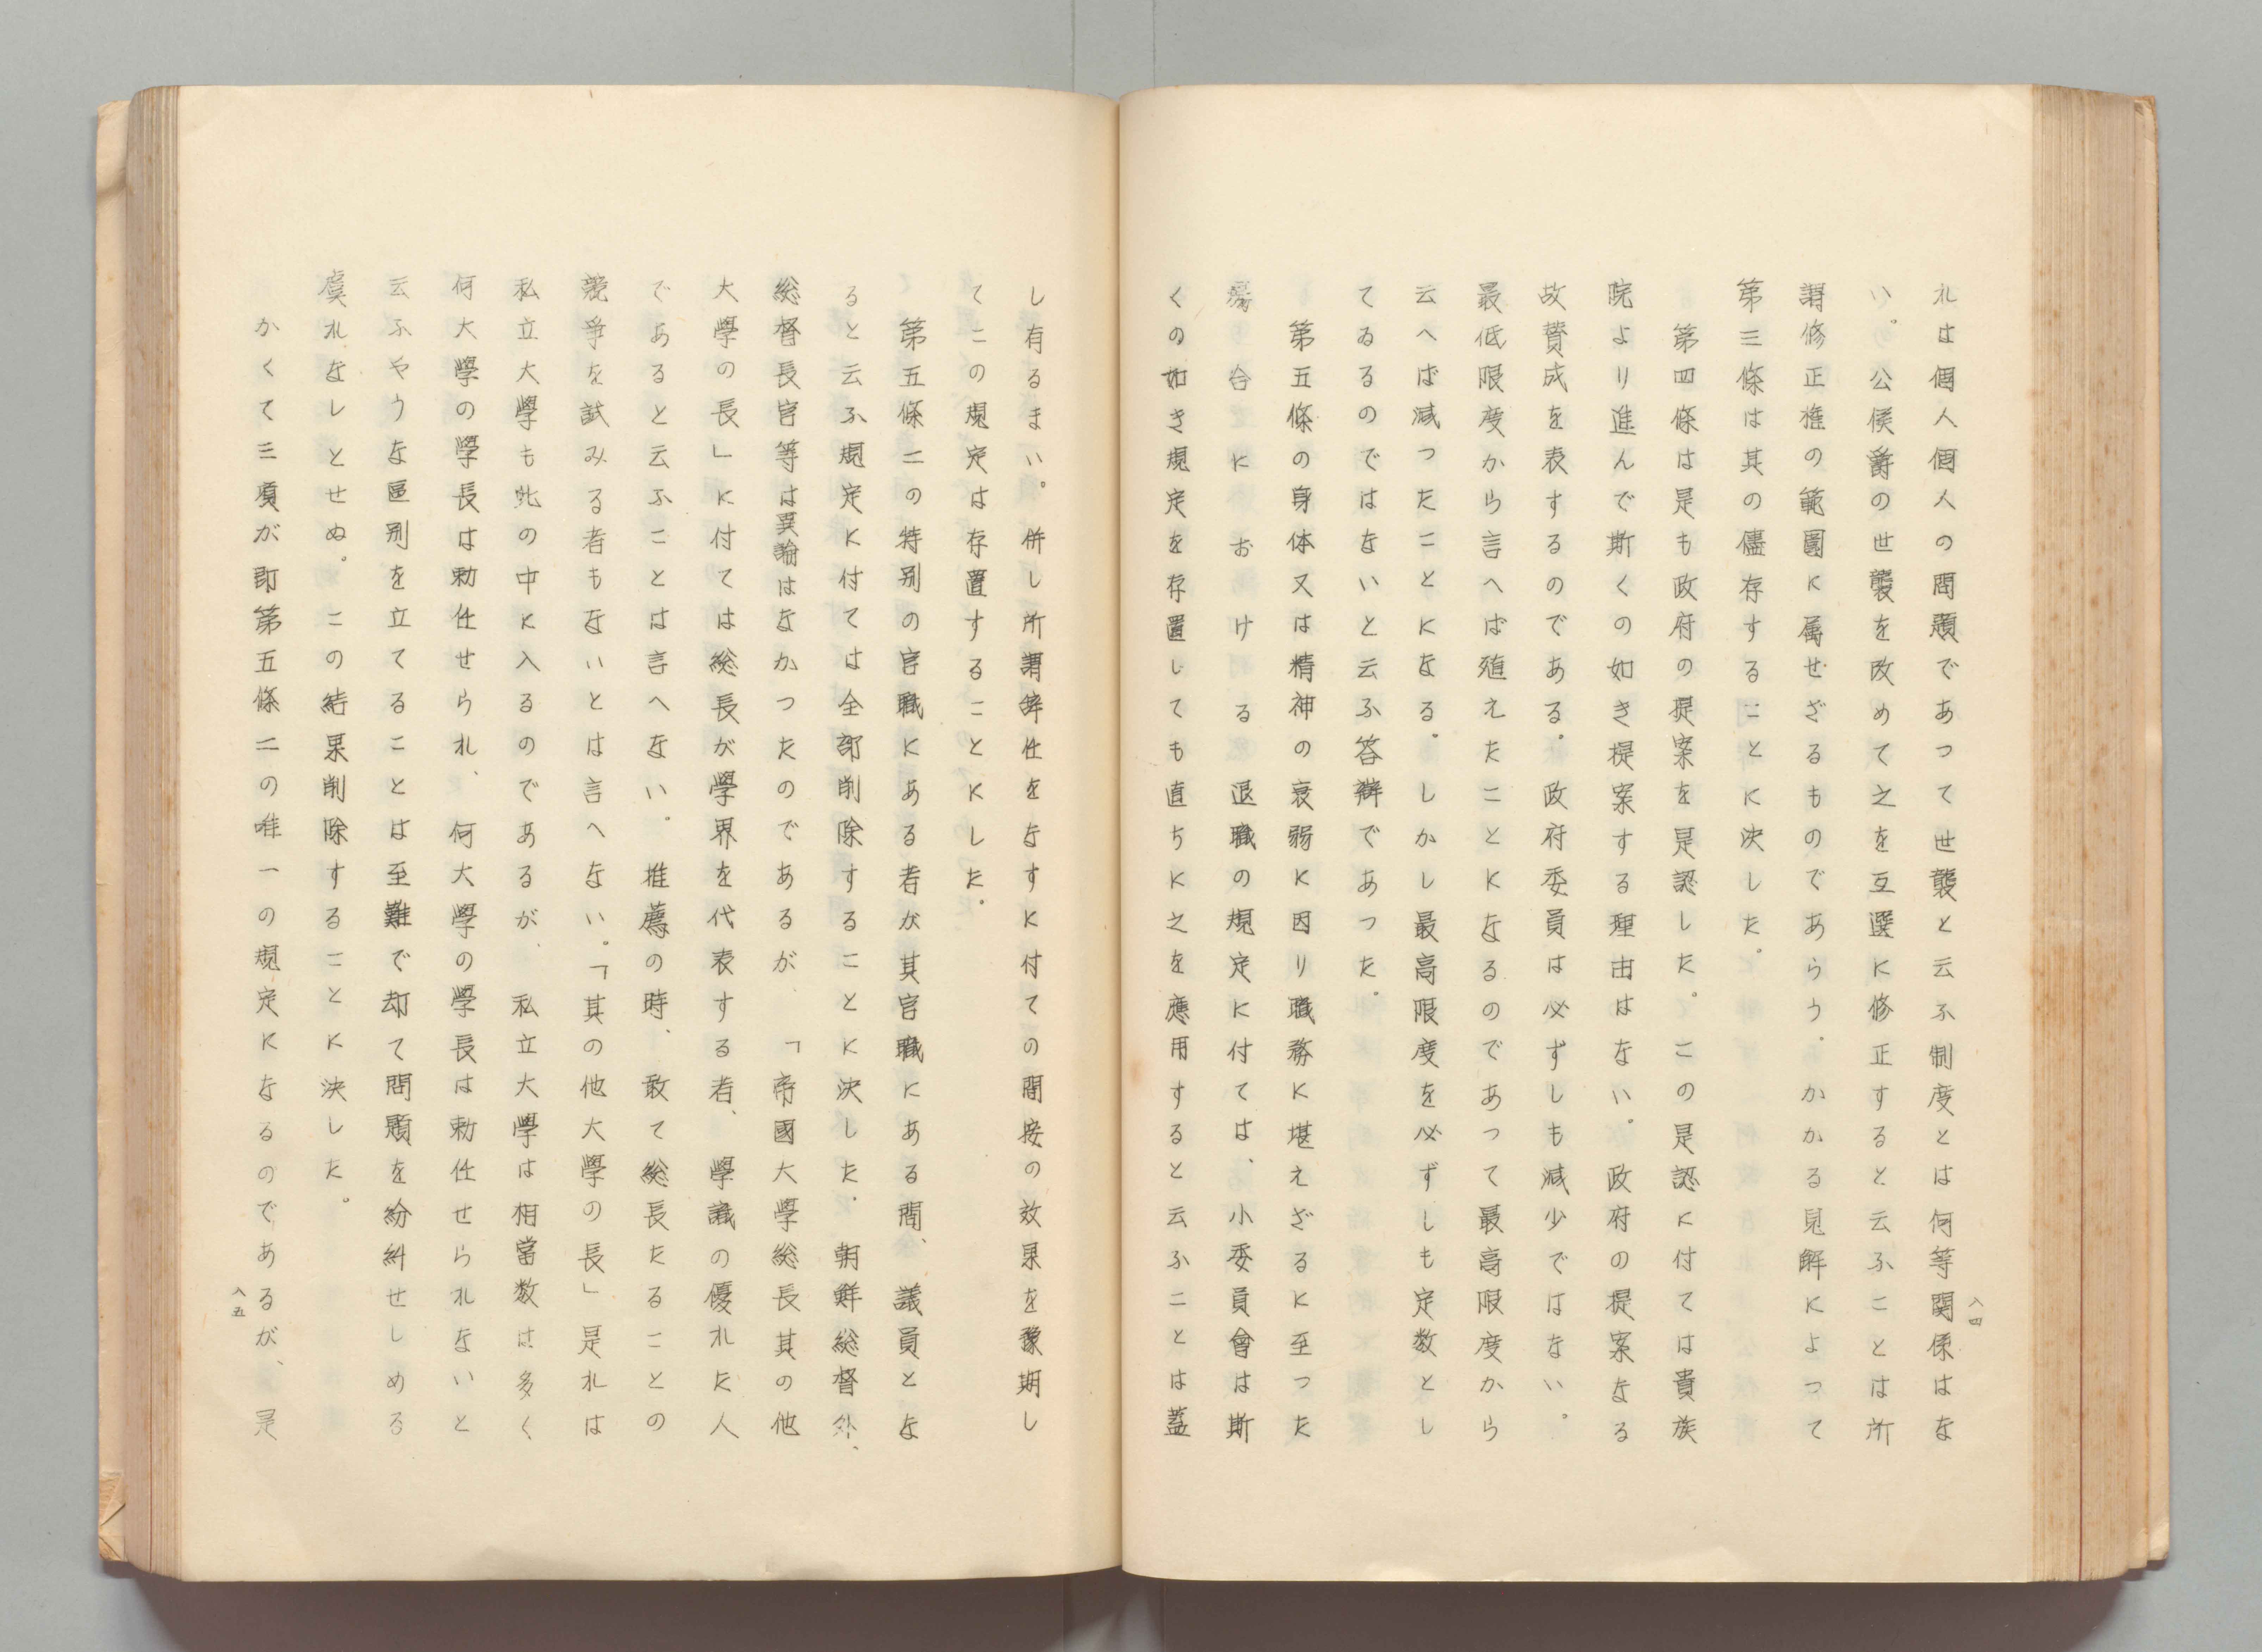 れは個人個人の問題であつて世襲と云ふ制度とは何等関係はな
い。公侯爵の世襲を改めて之を互選に修正すると云ふことは所
謂修正権の範圍に属せざるものであらう。かかる見解によつて
第三條は其の儘存することに決した。
第四條は是も政府の提案を是認した。この是認に付ては貴族
院より進んで斯くの如き提案する理由はない。政府の提案なる
故賛成を表するのである。政府委員は必ずしも減少ではない。
最低限度から言へば殖えたことになるのであつて最高限度から
云へば減つたことになる。しかし最高限度を必ずしも定数とし
てゐるのではないと云ふ答辯であつた。
第五條の身体又は精神の衰弱に因り職務に堪えざるに至つた
場合における退職の規定に付ては、小委員會は斯
くの如き規定を存置しても直ちに之を應用すると云ふことは蓋
八四
し有るまい。併し所謂辞任をなすに付ての間接の效果を豫期し
てこの規定は存置することにした。
第五條二の特別の官職にある者が其官職にある間、議員とな
ると云ふ規定に付ては全部削除することに決した。朝鮮総督外、
総督長官等は異論はなかつたのであるが、「帝國大學総長其の他
大學の長」に付ては総長が學界を代表する者、學識の優れた人
であると云ふことは言へない。推薦の時、敢て総長たることの
競爭を試みる者もないとは言へない。「其の他大學の長」是れは
私立大學も此の中に入るのであるが、私立大學は相當数は多く
何大學の學長は勅任せられ、何大學の學長は勅任せられないと
云ふやうな區別を立てることは至難で却て問題を紛糾せしめる
虞れなしとせぬ。この結果削除することに決した。
かくて三項が即第五條二の唯一の規定になるのであるが、是
八五